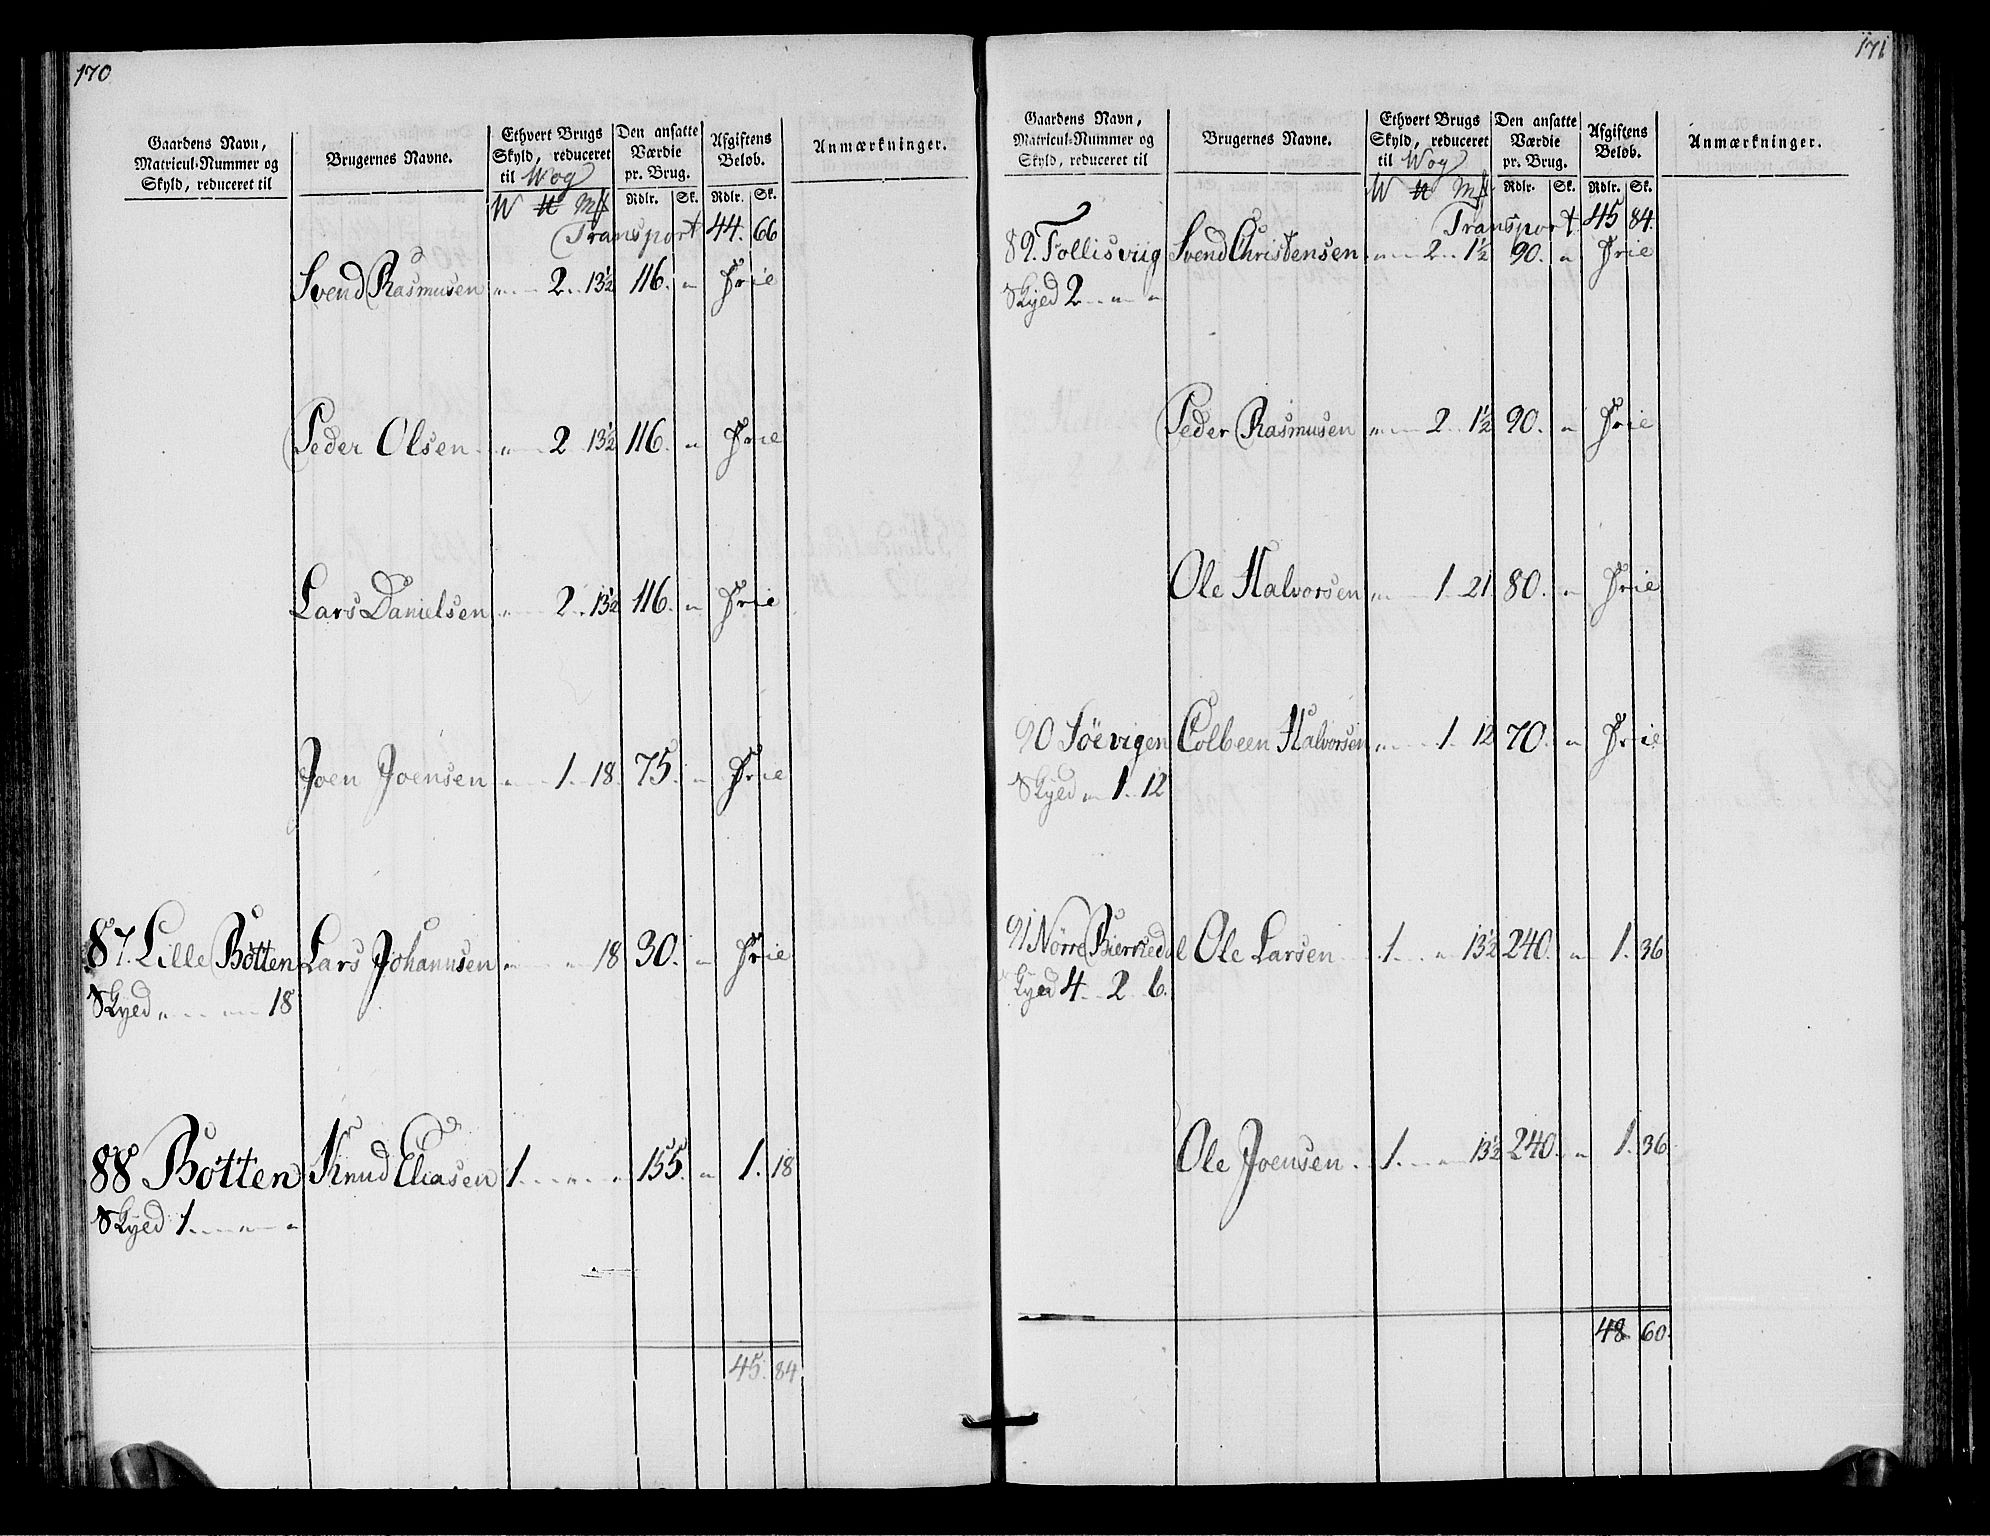 170
Gaardens Navn, Matricul-Nummer og Skyld, reduceret til
Brugernes Navne.
Ethvert Brugs Skyld, reduceret til Wog
Den ansatte Værdie pr. Brug.
Afgiftens Beløb.
Anmærkninger.
W ℔ Mk
Rdlr. Sk. Rdlr. Sk.
Transport 44. 66
Svend Rasmusen " 2 13½ 116. " Frie
Peder Olsen " 2 13½ 116. " Frie
Lars Danielsen " 2 13½ 116. " Frie
Joen Joensen " 1 18 75. " Frie
87. Lille Botten Lars Johannsen " " 18 30. " Frie
Skyed " " 18
88 Botten Knud Eliasen 1 " " 155. " 1. 18
Skyed 1 " "
45. 84
171
Gaardens Navn, Matricul-Nummer og Skyld, reduceret til
Brugernes Navne.
Ethvert Brugs Skyld, reduceret til Wog
Den ansatte Værdie pr. Brug.
Afgiftens Beløb.
Anmærkninger.
W ℔ Mk
Rdlr. Sk. Rdlr. Sk.
Transport. 45 84.
89. Follisviig Svend Christensen " 2 1½ 90. " Frie
Skyed 2 " "
Peder Rasmusen " 2 1½ 90. " Frie
Ole Halvorsen " 1 21 80. " Frie
90 Söevigen Colbeen Halvorsen " 1 12 70. " Frie
Skyed " 1 12
91 Nörre Bierkedal Ole Larsen 1 " 13½ 240. " 1. 36
Skyed 4 2 6.
Ole Joensen 1 " 13½ 240. " 1. 36
48 60.